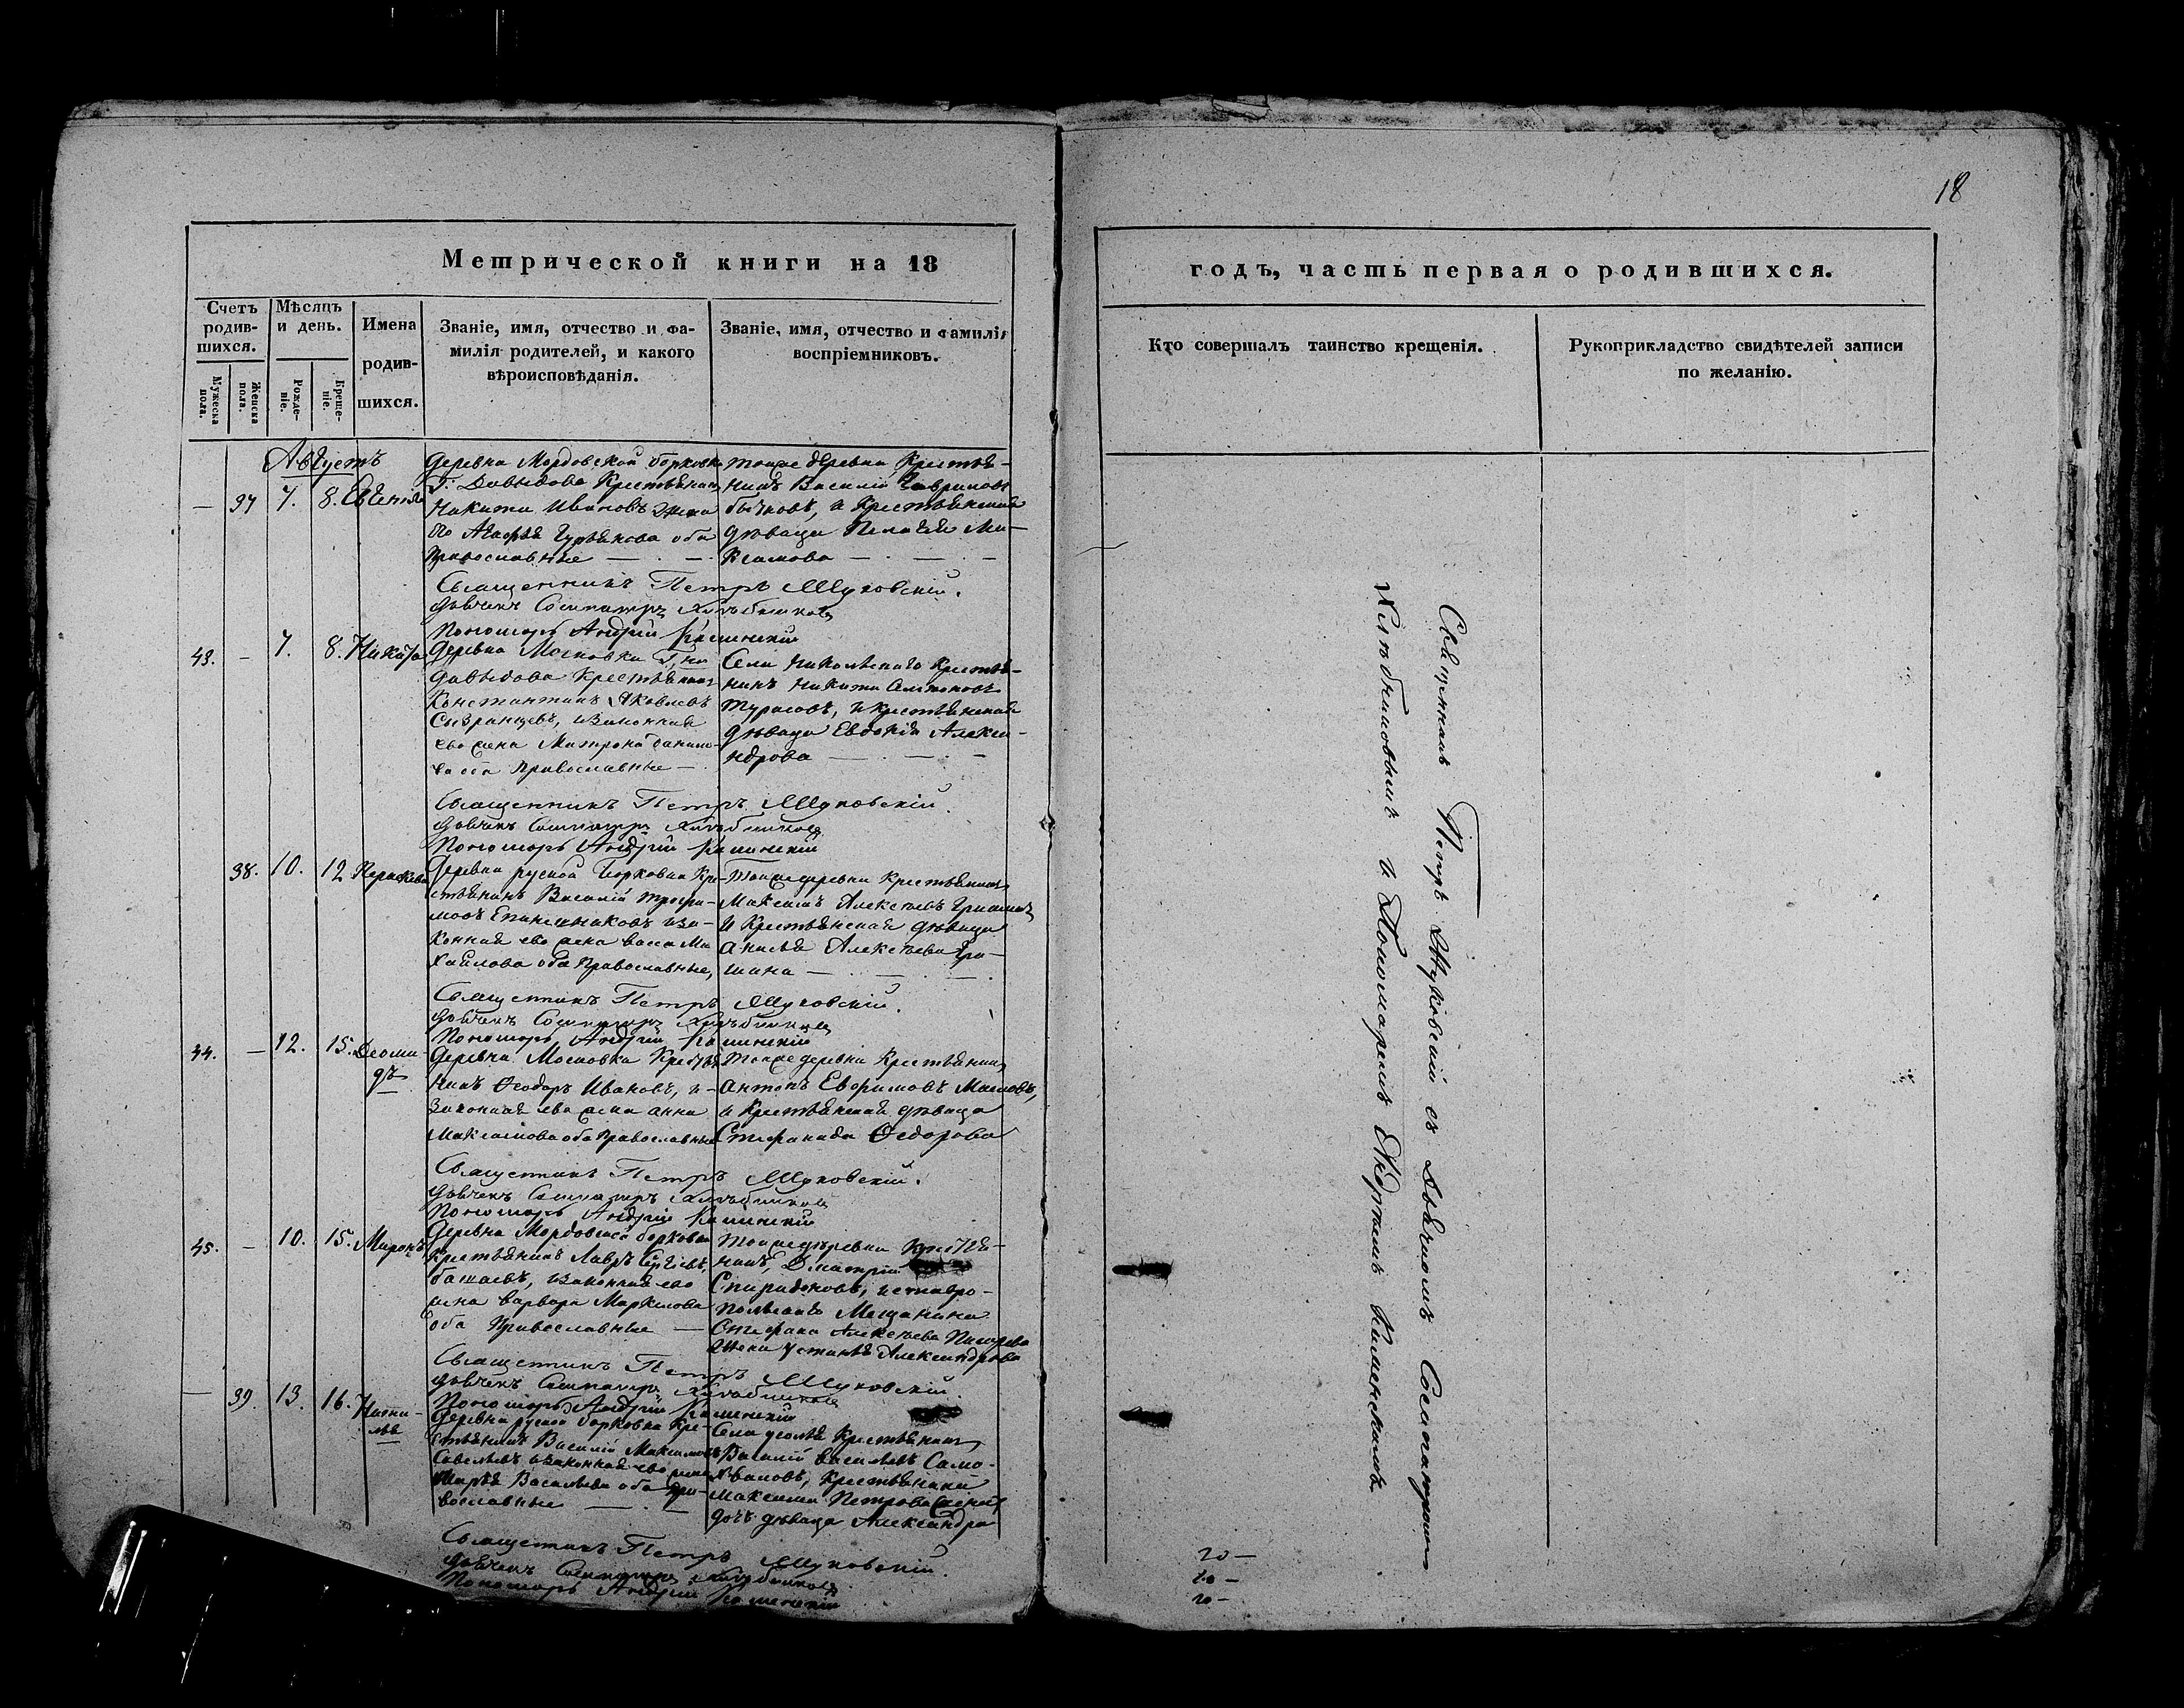 18
Метрической книги на 18
годъ, часть первая о родившихся.
Счетъ родив-
шихся.
Мужеска пола.
Женска пола.
Мѣсяцъ
и день.
Рожде-
ніе.
Креще-
ніе.
Имена
родив-
шихся.
Званіе, имя, отчество и фа-
милія родителей, и какого
вѣроисповѣданія.
Званіе, имя, отчество и фамилія
воспріемниковъ.
Кто совершалъ таинство крещенія.
Рукоприкладство свидѣтелей записи
по желанію.
Августъ
— 37 7. 8. Евгенія
Деревни Мордовской борковки
Г. Давыдова Крестьянинъ
Никита Ивановъ жена
его Агафья Гурьянова оба
Православные — . — .
тойже деревни Крестья-
нинъ Василий Гавриловъ
бычковъ, и Крестьянская
дѣвица Пелагея Ма-
ксимова — . — . —
Священникъ Петръ Жуковскій.
Дьячекъ Сосипатръ Хлѣбниковъ
Пономарь Андрей Каменскій
43. — 7. 8. Никита
Деревни Московки Г. на
Давыдова Крестьянинъ
Константинъ Яковлевъ
Сызранцевъ, изаконная
ево жена Матрона
ва оба Православные — .
Села Никольскаго Крестья-
нинъ Никита Семеновъ
Турасовъ, и крестьянская
дѣвица Евдокія Алекса-
ндрова — . — . —
Священникъ Петръ Жуковскій.
Дьячекъ Сосипатръ Хлѣбниковъ
Пономарь Андрей Каменскій
38. 10. 12
Деревни руской Борковки Кре-
стьянинъ Василий Трофи-
мовъ Епанешниковъ иза-
конная ево жена васса Ми
хайлова оба Православные,
Тойже деревни Крестьянинъ
Максимъ Алексѣевъ Гришинъ
и Крестьянская дѣвица
Алексѣева Гри-
шина — . — . — .
Священникъ Петръ Жуковскій.
Дьячекъ Сосипатръ Хлѣбниковъ
Пономарь Андрей Каменскій
44. — 12. 15. Деоми-
дъ
Деревни Московки Крестья
нинъ Ѳеодоръ Ивановъ, и —
Законная ево жена анна
Максимова оба Православные
Тойже деревни Крестьянинъ
антонъ Ефримовъ Масловъ,
и Крестьянская дѣвица
Стефанида Ѳедорова
Священникъ Петръ Жуковскій.
Дьячекъ Сосипатръ Хлѣбниковъ
Пономарь Андрей Каменскій
45. — 10. 15. Миронъ
Деревни Мордовской борковки
Крестьянинъ Лавръ Сергѣевъ
башаевъ, изаконная ево
жена варвара Маркелова
оба Православные —
Тойже деревни Крестья-
нинъ, Дмитрій
Спиридоновъ, иставро-
польскаго Мещанина
Стефана Алексѣева Писарева
жена устинья Александрова
Священникъ Петръ Жуковскій.
Дьячекъ Сосипатръ Хлѣбниковъ
Пономарь Андрей Каменскій
— 39. 13. 16. Ната-
лья
Деревни руской борковки Кре-
стьянинъ Василий Максимовъ
Савельевъ изаконная ево жена
Марья Васильева оба Пра-
вославные — . —
Села усолья Крестьянинъ
Василий васильевъ Само-
хваловъ, Крестьянина
Максима Петрова
дочь дѣвица Александра
Священникъ Петръ Жуковскій.
Дьячекъ Сосипатръ Хлѣбниковъ
Пономарь Андрей Каменскій
Священникъ Петръ Жуковскій съ Дьячкомъ Сосипатромъ
Хлѣбниковымъ и Пономаремъ Андреемъ Каменскимъ
20 —
20 —
20 —